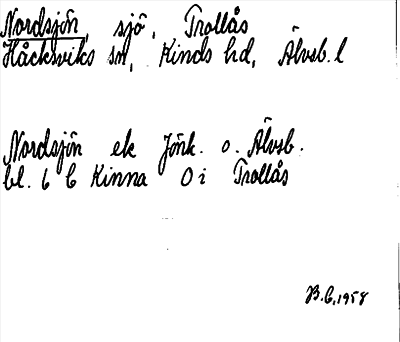 Nordsjön, sjö, Trollås
Håcksviks sn, Kinds hd, Älvsb. l
Nordsjön ek Jönk. o. Älvsb.
bl. 6 b Kinna O i Trollås
B.C. 1958